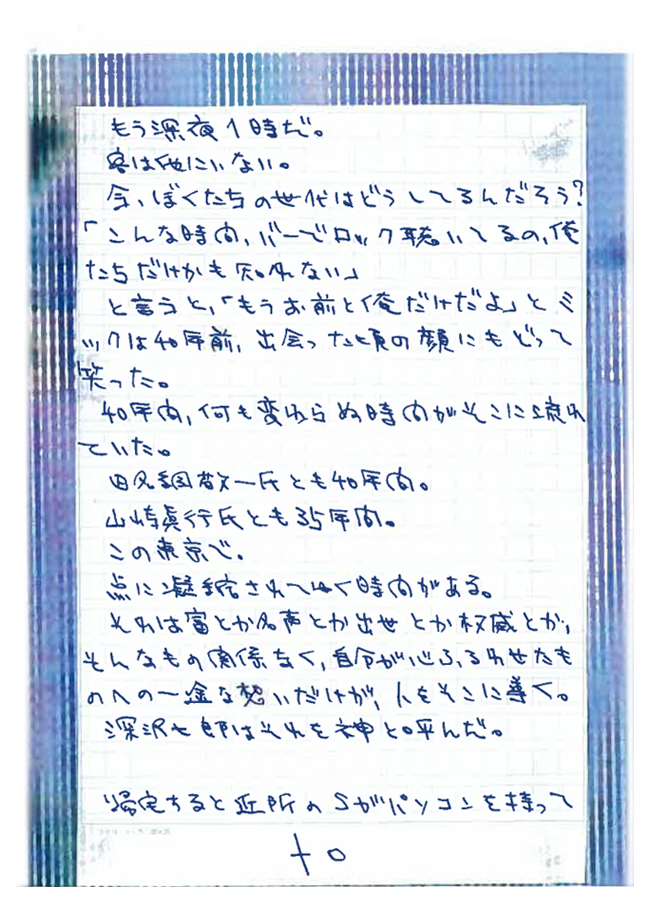 もう深夜1時だ。
客は他にいない。
今、ぼくたちの世代はどうしてるんだろう?
「こんな時間、バーでロック聴いてるの、俺
たちだけかも知れない」
と言うと、「もうお前と俺だけだよ」とミ
ックは40年前、出会った頃の顔にもどって
笑った。
40年間、何も変わらぬ時間がそこに流れ
ていた。
田名網敬一氏とも40年間。
山崎眞行氏とも35年間。
この東京で。
点に凝縮されてゆく時間がある。
それは富とか名声とか出世とか権威とか、
そんなもの関係なく、自分が心ふるわせたも
のへの一途な想いだけが、人をそこに導く。
深沢七郎はそれを神と呼んだ。
帰宅すると近所のSがパソコンを持って
10